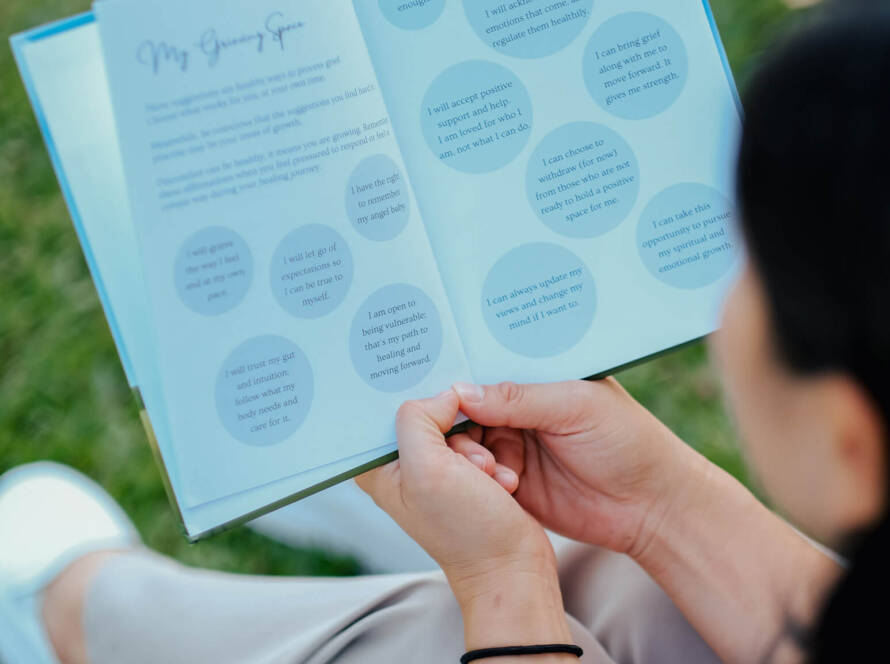 My Grieving Space
These suggestions are healthy ways to process grief
Choose what works for you, at your own time.
Meanwhile, be conscious that the suggestions you find hard to
practise may be your areas of growth.
Discomfort can be healthy, it means you are growing.
these affirmations when you feel pressured to respond or feel a
certain way during your healing journey.
I have the right
to remember
my angel baby
I will grieve
the way I feel
and at my own
pace.
I will let go of
expectations so
I can be true to
myself.
I am open to
being vulnerable;
that's my path to
healing and
moving forward.
I will trust my gut
and intuition;
follow what my
body needs and
care for it.
enough.
I will
emotions that come,
regulate them healthily.
I can bring grief
along with me to
move forward. It
gives me strength.
I will accept positive
support and help.
I am loved for who I
am, not what I can do.
I can choose to
withdraw (for now)
from those who are not
ready to hold a positive
space for me.
I can take this
opportunity to pursue
my spiritual and
emotional growth.
I can always update my
views and change my
mind if I want to.